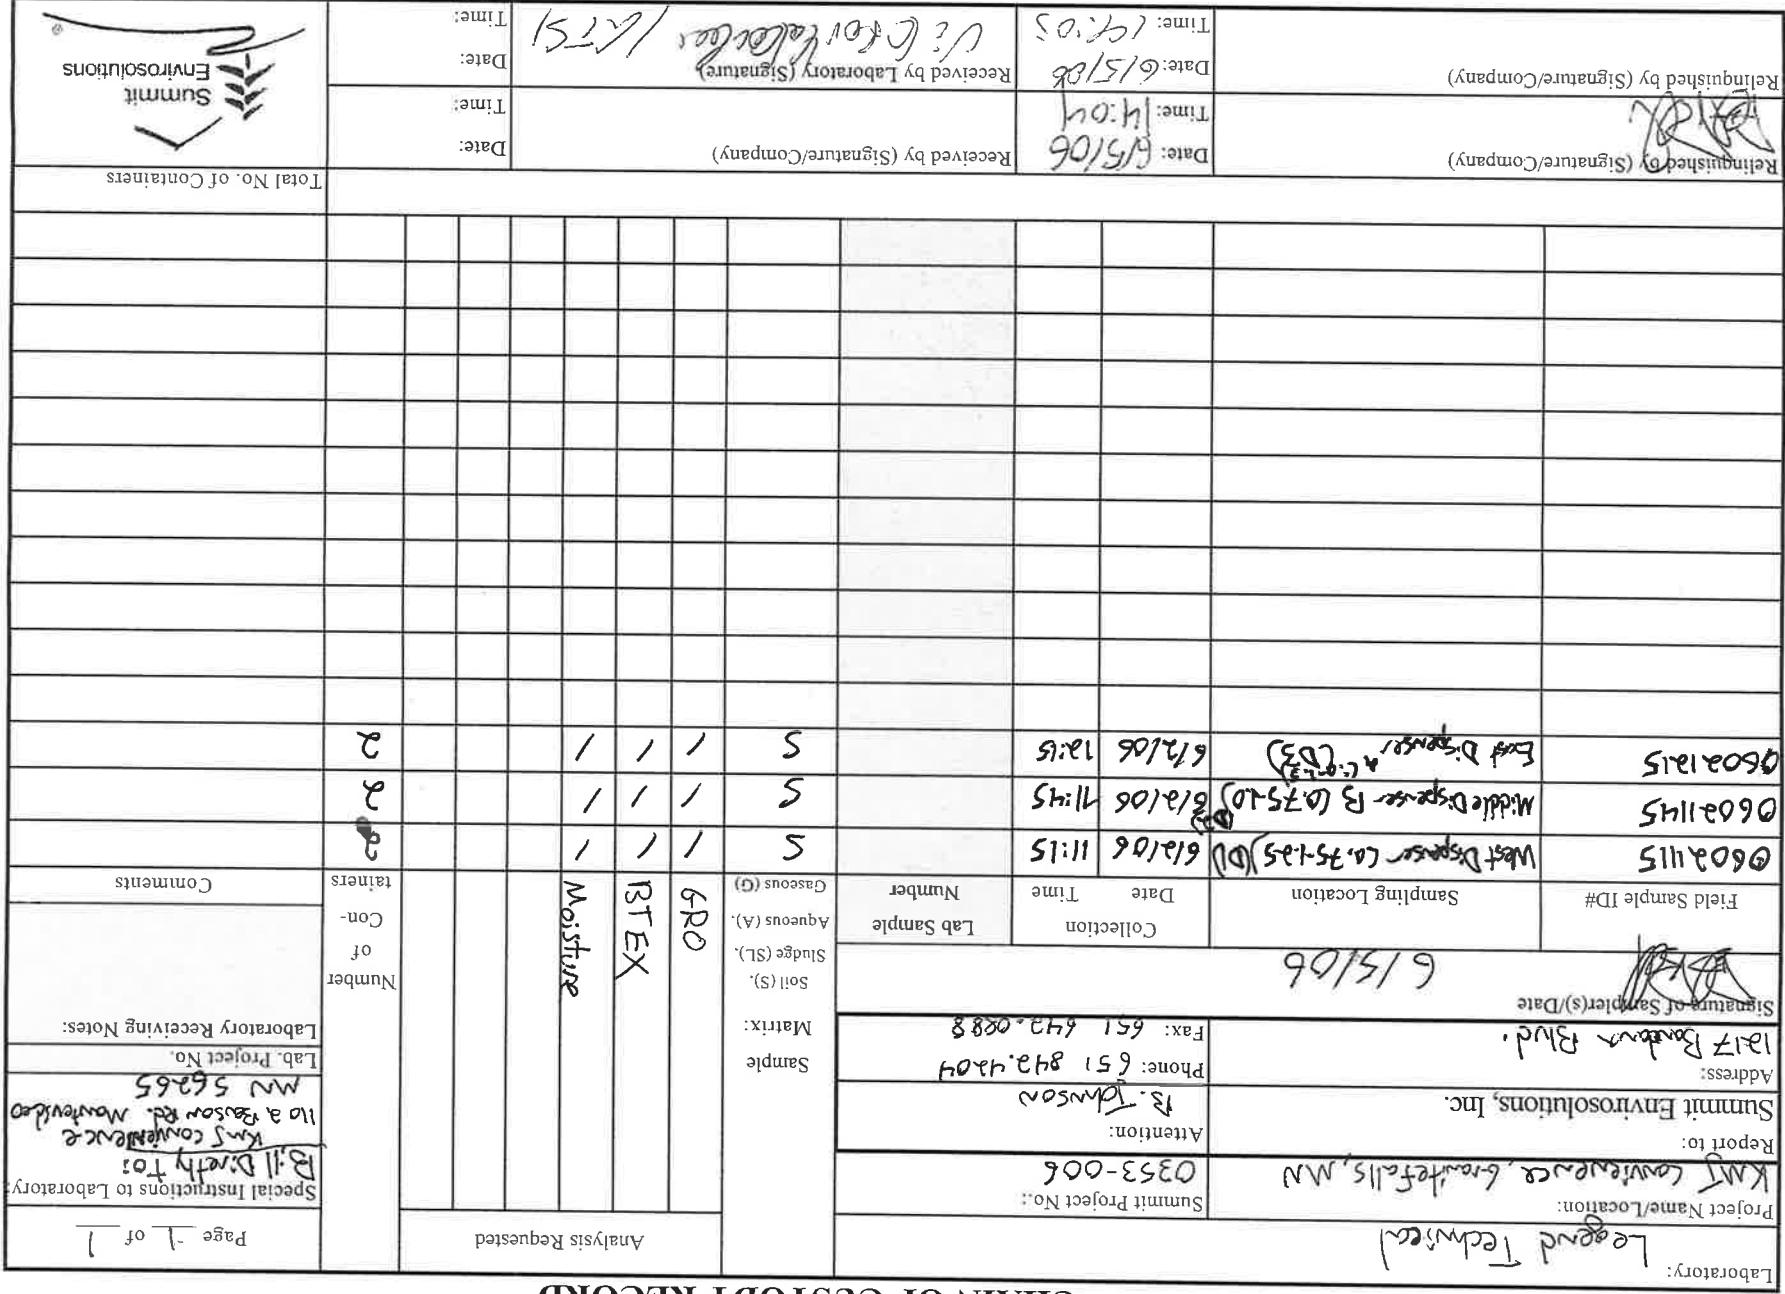 CHAIN OF CUSTODY RECORD
Laboratory:
Legend Technical
Project Name/Location:
KMJ Convienence, Granitefalls, MN
Summit Project No.:
0353-006
Report to:
Summit Envirosolutions, Inc.
Attention:
B. Johnson
Address:
1217 Bandana Blvd.
Phone: 651 842.4204
Fax: 651 642.0288
Signature of Sampler(s)/Date
6/5/06
Analysis Requested
Page 1 of 1
Special Instructions to Laboratory:
Bill Directly To:
KMJ convienence
110 2 Benson Rd. Montevideo
MN 56265
Lab. Project No.
Laboratory Receiving Notes:
Field Sample ID#
Sampling Location
Collection
Date Time
Lab Sample
Number
Sample
Matrix:
Soil (S).
Sludge (SL).
Aqueous (A).
Gaseous (G)
GRO
BTEX
Moisture
Number
of
Con-
tainers
Comments
06021115 West Dispenser (0.75-1.25) (D1) 6/2/06 11:15 S 1 1 1 2
06021145 Middle Dispenser B (0.75-1.0) (D2) 6/2/06 11:45 S 1 1 1 2
06021215 East Dispenser (D3) 6/2/06 12:15 S 1 1 1 2
Total No. of Containers
Relinquished by (Signature/Company)
Date: 6/5/06
Time: 14:04
Received by (Signature/Company)
Date:
Time:
Relinquished by (Signature/Company)
Date: 6/5/06
Time: 14:05
Received by Laboratory (Signature)
Date:
Time:
Summit
Envirosolutions